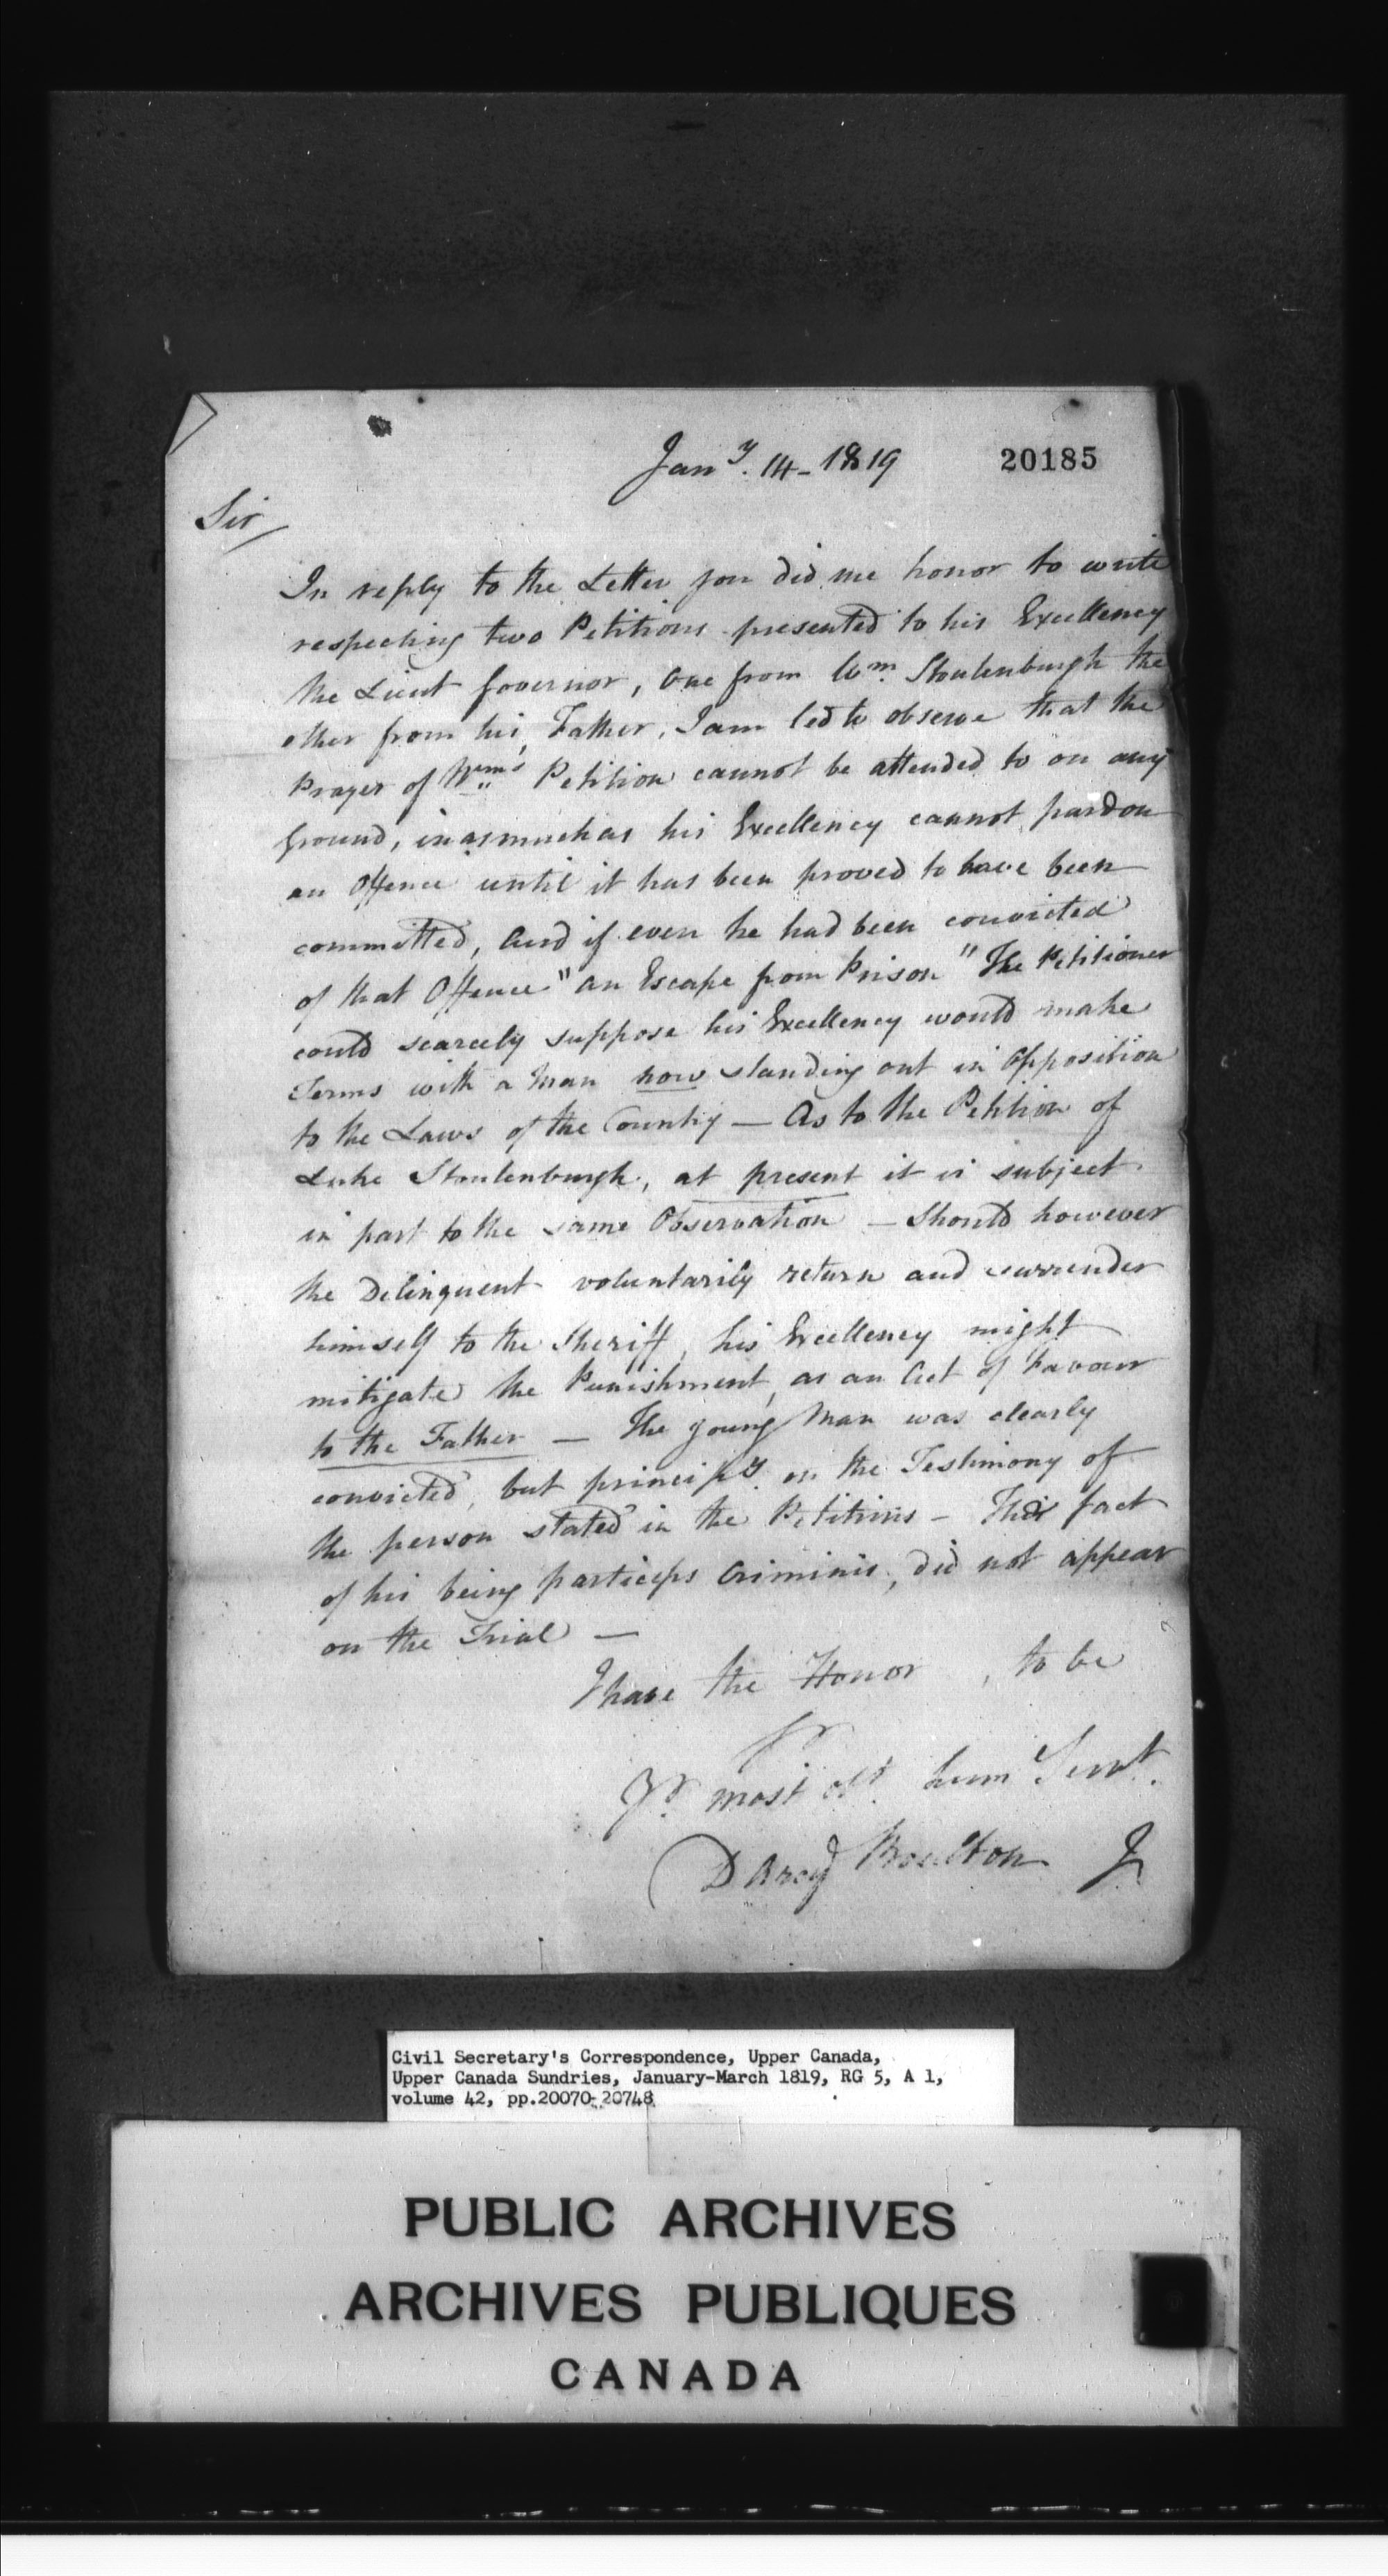 Jan.y 14 - 1819
20185
Sir
In reply to the Letter you did me honor to write
respecting two Petitions presented to his Excellency
the Lieut Governor, One from Wm. Stoutenburgh the
other from his Father, I am led to observe that the
Prayer of Wm's Petition cannot be attended to on any
Ground, inasmuch as his Excellency cannot pardon
an Offence until it has been proved to have been
committed, And if even he had been convicted
of that Offence "an Escape from Prison" The Petitioner
could scarcely suppose his Excellency would make
Terms with a Man now standing out in Opposition
to the Laws of the Country — As to the Petition of
Luke Stoutenburgh, at present it is subject
in part to the same Observation — Should however
the Delinquent voluntarily return and surrender
himself to the Sheriff, his Excellency might
mitigate the Punishment, as an Act of Favour
to the Father — The young Man was clearly
convicted, but principy. on the Testimony of
the person stated in the Petitions — The fact
of his being particeps Criminis, did not appear
on the Trial —
I have the Honor, to be
Sr
Yr. most obt. hum Servt.
D Arcy Boulton Jr
Civil Secretary's Correspondence, Upper Canada,
Upper Canada Sundries, January-March 1819, RG 5, A 1,
volume 42, pp.20070-20748
PUBLIC ARCHIVES
ARCHIVES PUBLIQUES
CANADA